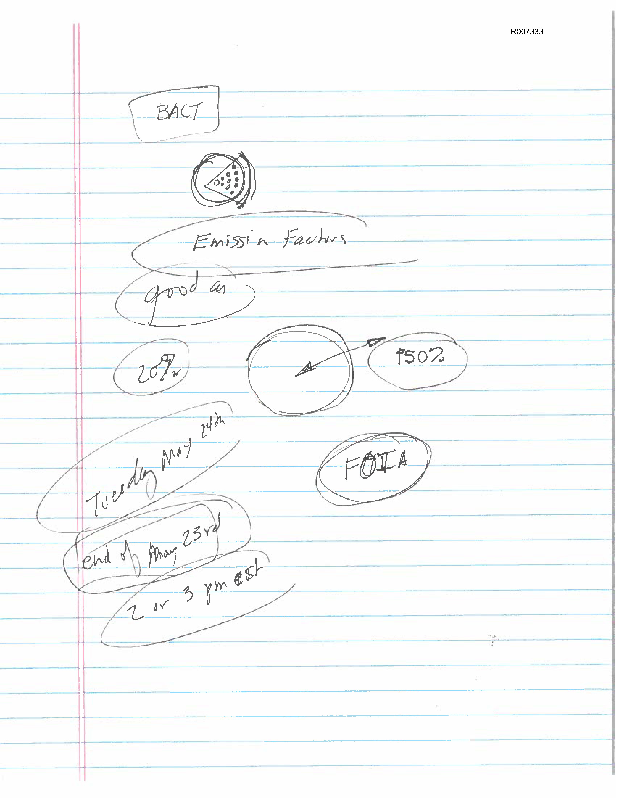 R007333
BACT
Emissin Factors
good as
20%
±50%
Tuesday May 24th
FOIA
end of May 23rd
2 or 3 pm est